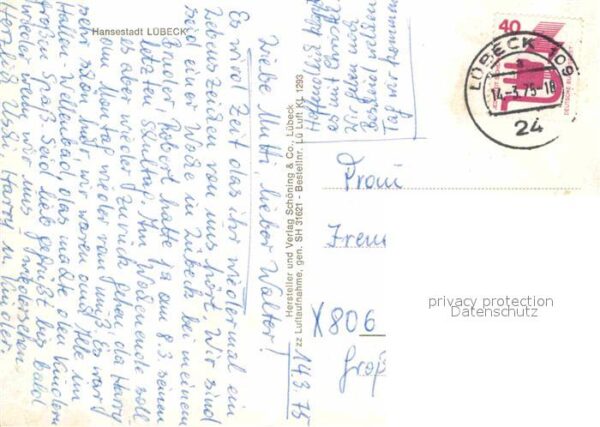 Hansestadt LÜBECK
14.3.75
Liebe Mutti, lieber Walter!
Es wird Zeit das ihr wiedermal ein
Lebenszeichen von uns hört. Wir sind
seit einer Woche in Lübeck bei meinem
Bruder, Robert hatte ja am 8.3. seinen
letzten Schultag. Am Wochenende soll
es aber wieder zurück gehen da Harry
am Montag wieder ran muß. Es war
sehr schön hier, wir waren auch alle im
Hallen-Wellenbad, das machte den Kindern
großen Spaß. Seid lieb gegrüßt bis bald
wieder von mir uns
Herzlich Harry u. Kinder
Hoffentlich klappt
es mit Ostern
Wir geben noch
Bescheid welchen
Tag wir kommen
Hersteller und Verlag Schöning & Co., Lübeck
zz Luftaufnahme, gen. SH 31621 - Bestellnr. Lü Luft KL 1293
40
DEUTSCHE BUN
LÜBECK 109
a
14.-3.75-18
24
Frau
Irene
X806
Groß
privacy protection
Datenschutz